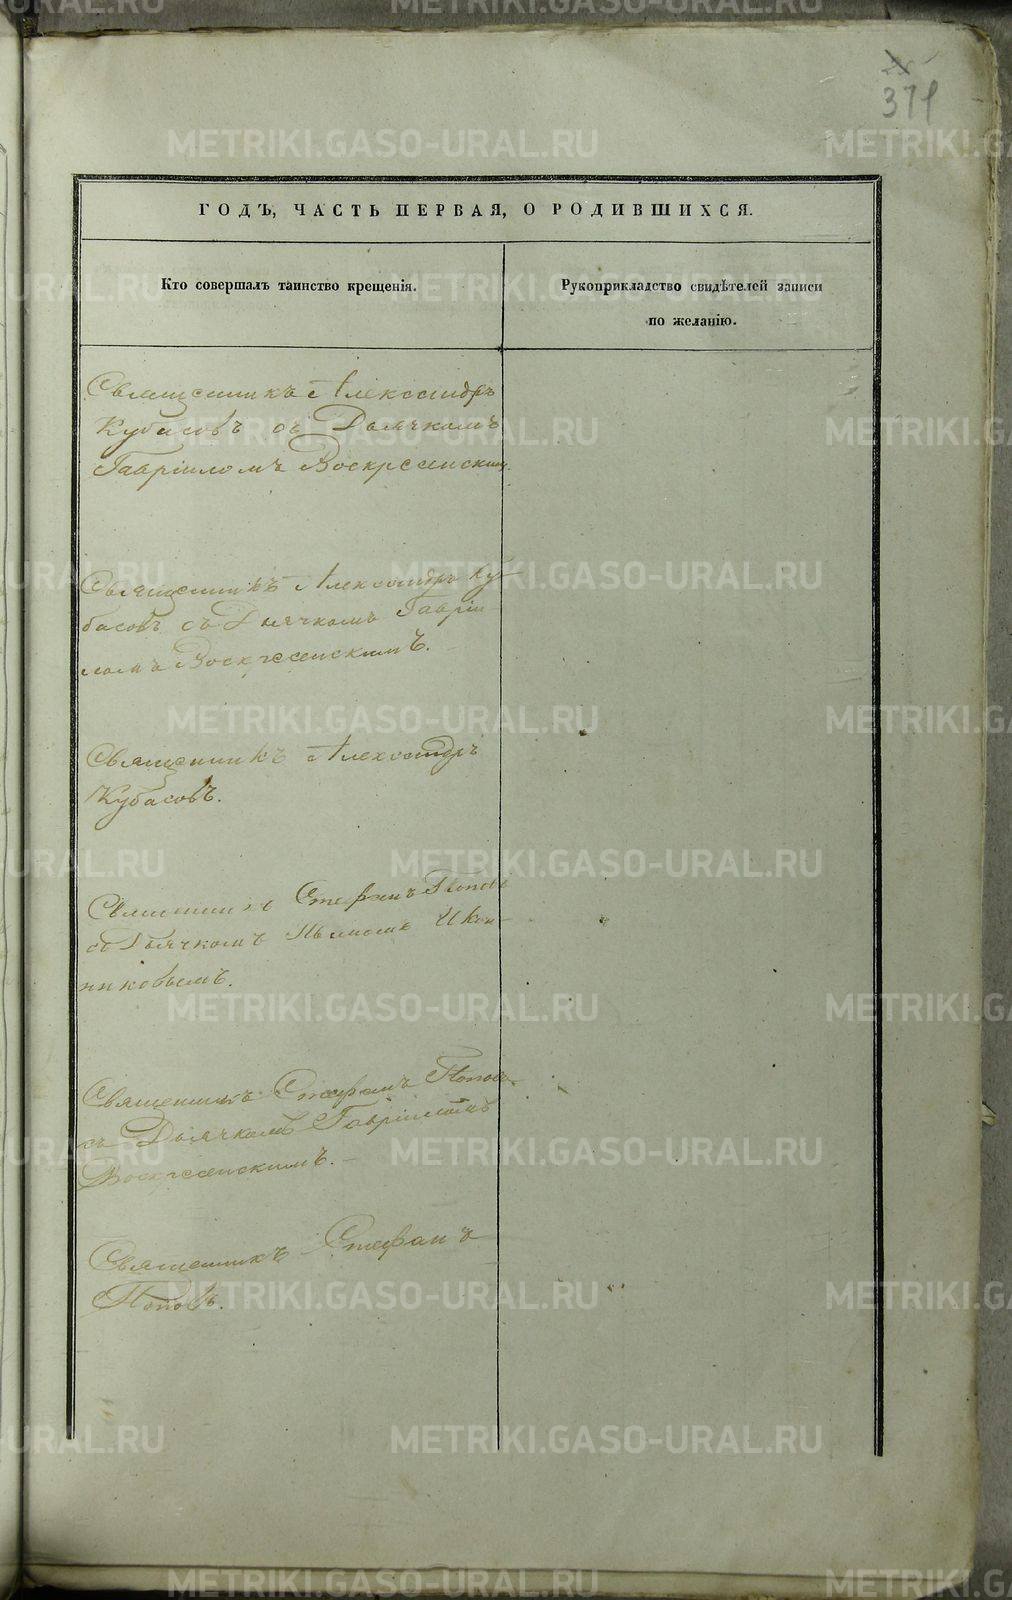 371
ГОДЪ, ЧАСТЬ ПЕРВАЯ, О РОДИВШИХСЯ.
Кто совершалъ таинство крещенія.
Рукоприкладство свидѣтелей записи
по желанію.
Священникъ Александръ
Кубасовъ съ Дьячкомъ
Гавріиломъ Воскресенскимъ
Священникъ Александръ Ку-
басовъ съ Дьячкомъ Гаврiи-
ломъ Воскресенскимъ.
Священникъ Александръ
Кубасовъ.
Священникъ Стефанъ Поповъ
съ Дьячкомъ Икон-
никовымъ.
Священникъ Стефанъ Поповъ
съ Дьячкомъ Гавріиломъ
Воскресенскимъ.
Священникъ Стефанъ
Поповъ.
METRIKI.GASO-URAL.RU